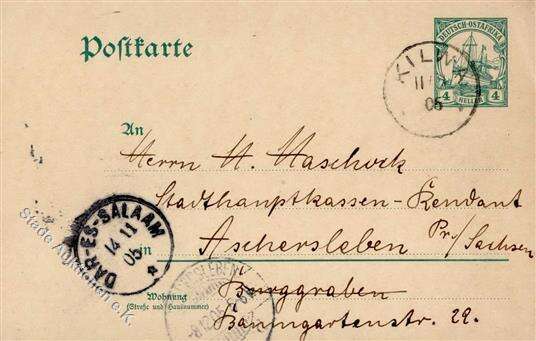 Postkarte
DEUTSCH-OSTAFRIKA
4 HELLER 4
KILWA
11
05
An
Herrn H. Maschock
Stadthauptkassen-Rendant
DAR-ES-SALAAM
14 11
05
in Aschersleben Pr/Sachsen
Wohnung
(Straße und Hausnummer)
Burggraben
Baumgartenstr. 29.